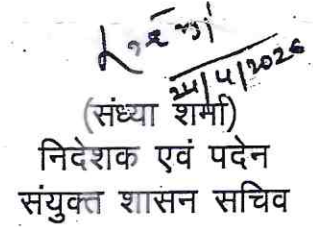 24/4/2026
(संध्या शर्मा)
निदेशक एवं पदेन
संयुक्त शासन सचिव